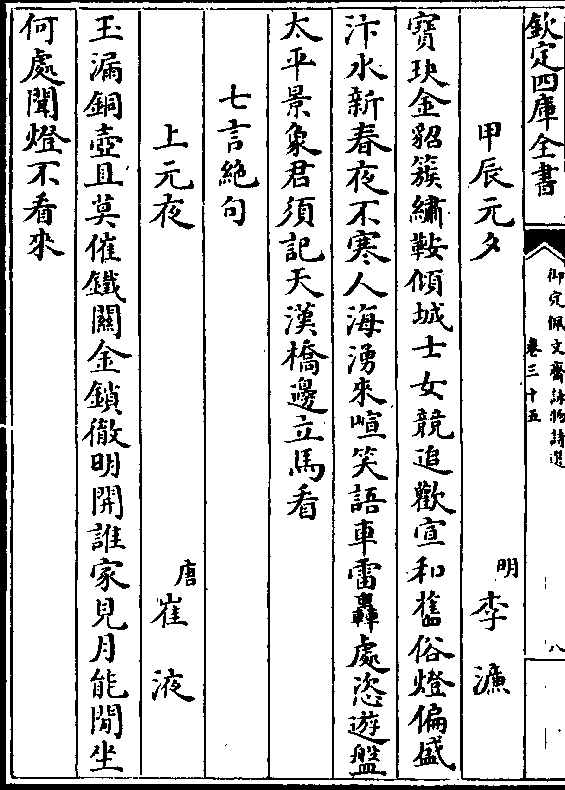 欽定四庫全書
御定佩文齋詠物詩選
卷三十五
八
甲辰元夕
明
李濂
寶玦金貂簇繡鞍傾城士女競追歡宣和舊俗燈偏盛
汴水新春夜不寒人海湧來喧笑語車雷轟處恣遊盤
太平景象君須記天漢橋邊立馬看
七言絶句
上元夜
唐
崔液
玉漏銅壺且莫催鐵關金鎖徹明開誰家見月能閒坐
何處聞燈不看來